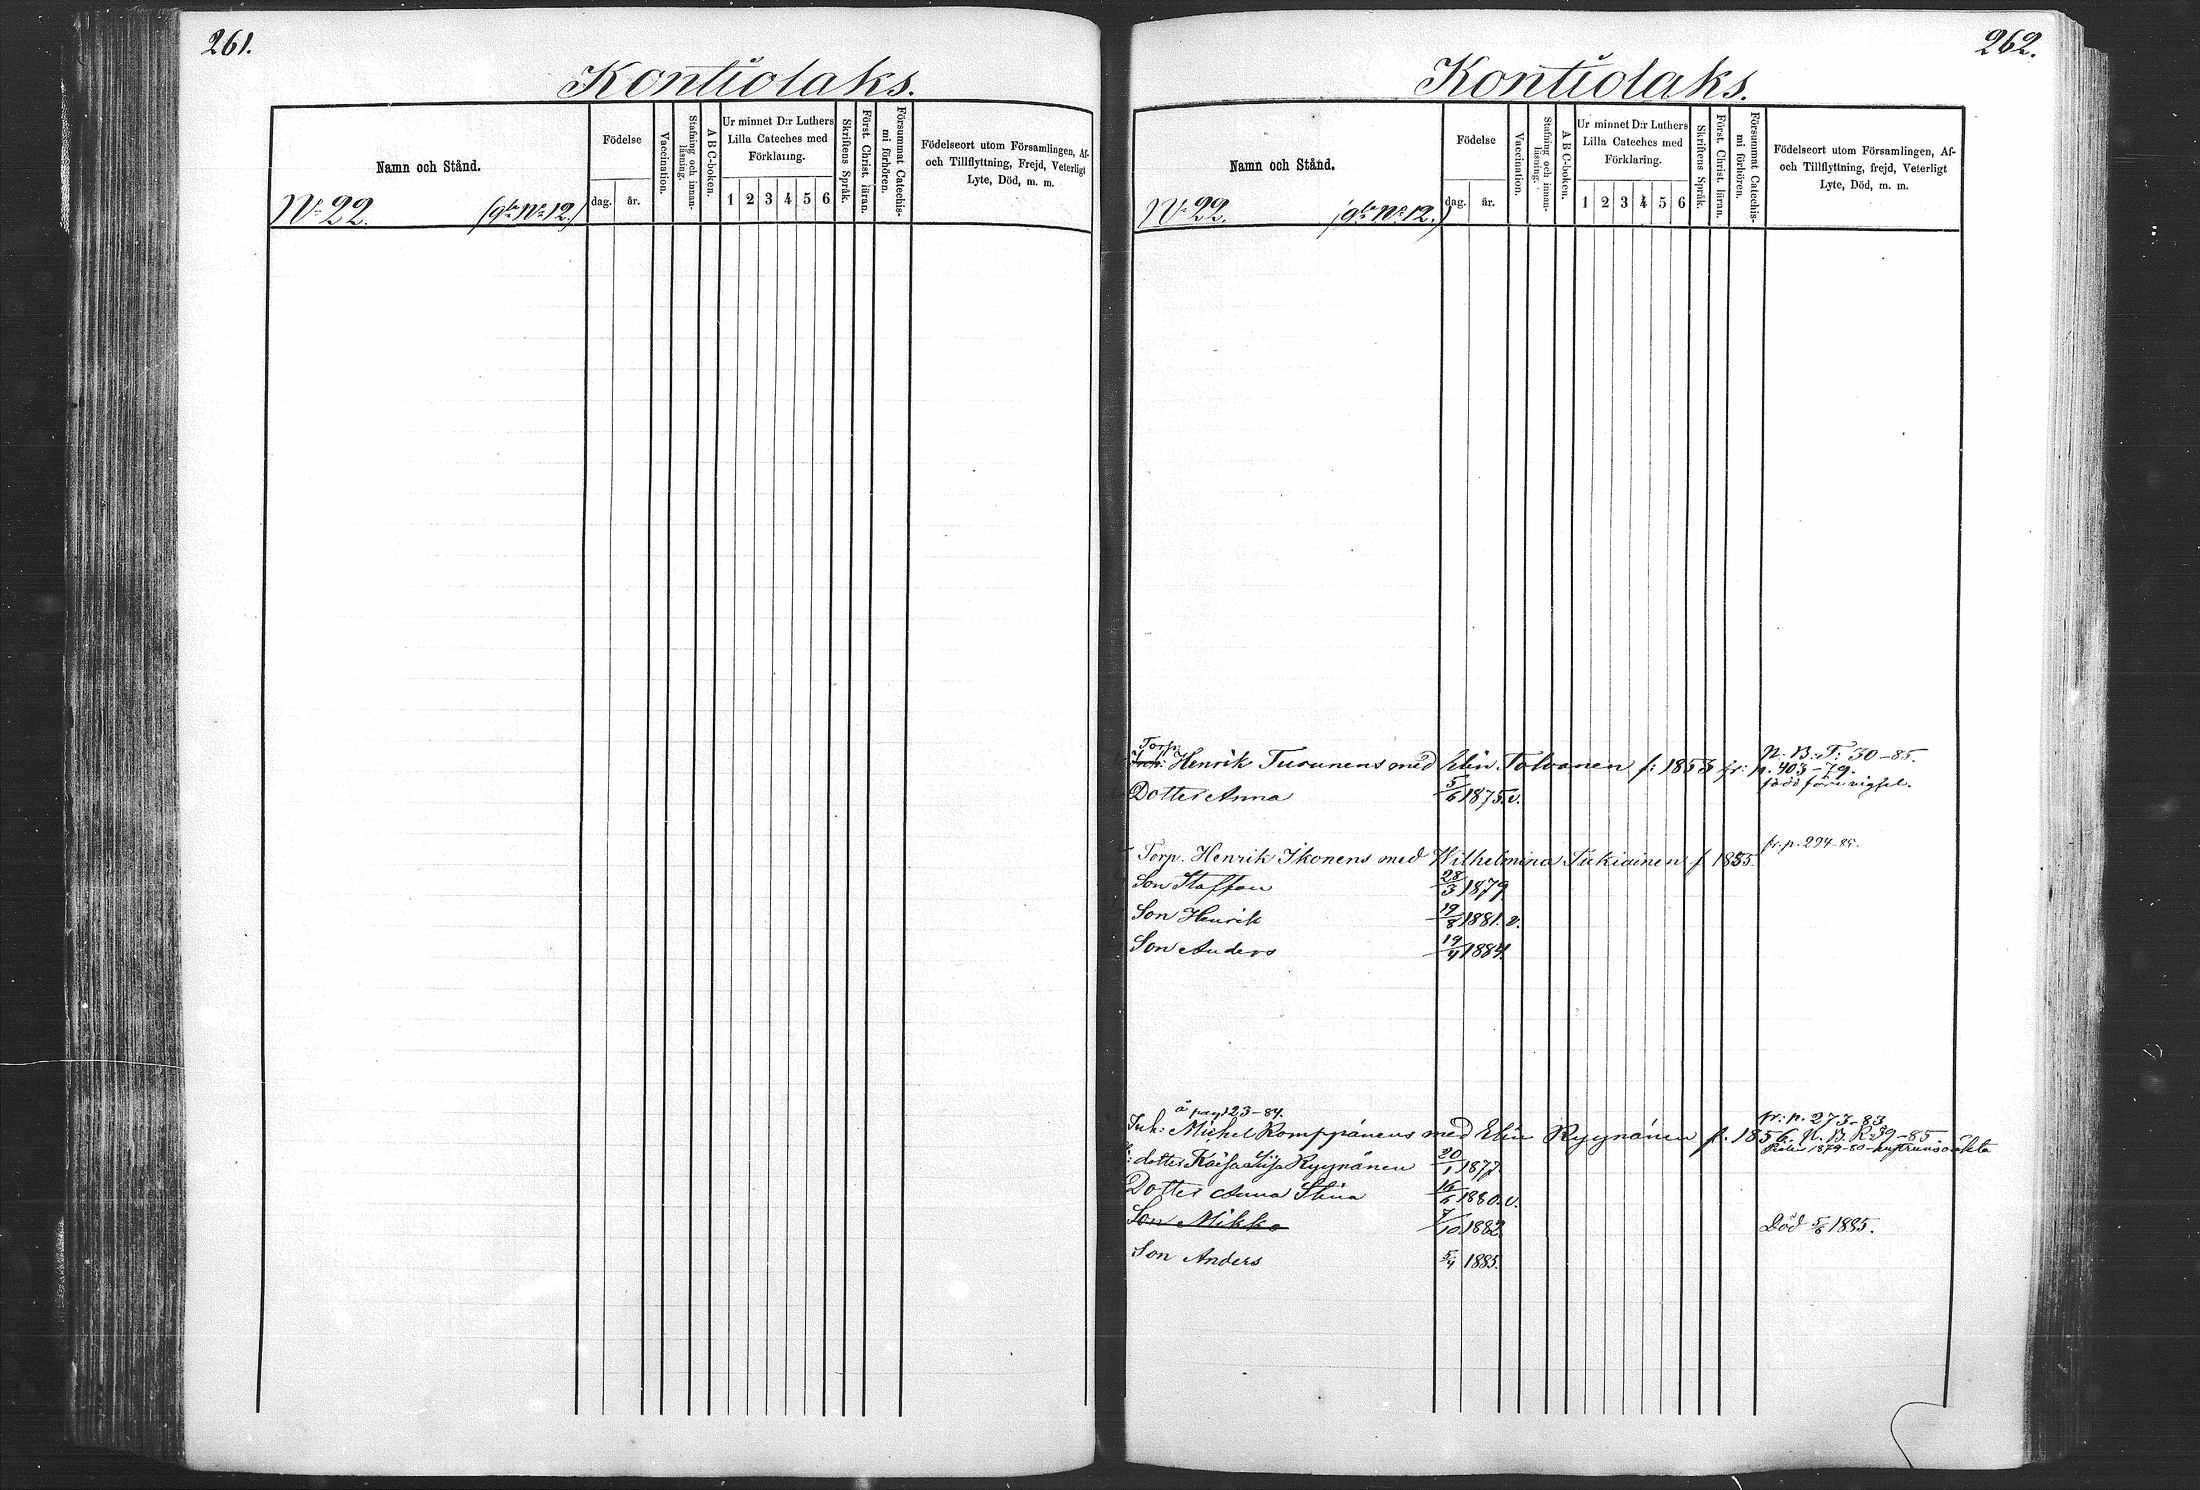 261.
Kontiolaks.
Namn och Stånd.
Födelse
dag. år.
Vaccination.
Stafning och innan-läsning.
A B C-boken.
Ur minnet D:r Luthers
Lilla Cateches med
Förklaring.
1 2 3 4 5 6
Skriftens Språk.
Först. Christ. läran.
Försummat Catechis-mi förhören.
Födelseort utom Församlingen, Af-
och Tillflyttning, Frejd, Veterligt
Lyte, Död, m. m.
No 22. (gla No 12.)
262.
Kontiolaks.
Namn och Stånd.
Födelse
dag. år.
Vaccination.
Stafning och innan-läsning.
A B C-boken.
Ur minnet D:r Luthers
Lilla Cateches med
Förklaring.
1 2 3 4 5 6
Skriftens Språk.
Först. Christ. läran.
Försummat Catechis-mi förhören.
Födelseort utom Församlingen, Af-
och Tillflyttning, frejd, Veterligt
Lyte, Död, m. m.
No 22. (gla No 12.)
Torp.
Henrik Turunens med Elin Tolvanen f: 1853 fr: p. 403-79.
N. B. T. 30-85.
Dotter Anna 5/6 1875. v. född före vigsel.
Torp. Henrik Ikonens med Wilhelmina Tukiainen f. 1855. fr. p. 294-85.
Son Staffan 28/3 1879
Son Henrik 19/8 1881. v.
Son Anders 19/4 1884.
å pag 123-84. fr: p. 273-83
Inh: Michel Romppänens med Elin Ryynänen f. 1856. N. B. R. 39-85
dotter Kaisa Lisa Ryynänen 20/1 1877
Dotter Anna Stina 16/6 1880. v.
Son Mikko 7/10 1882 Död 5/6 1885.
Son Anders 5/4 1885.